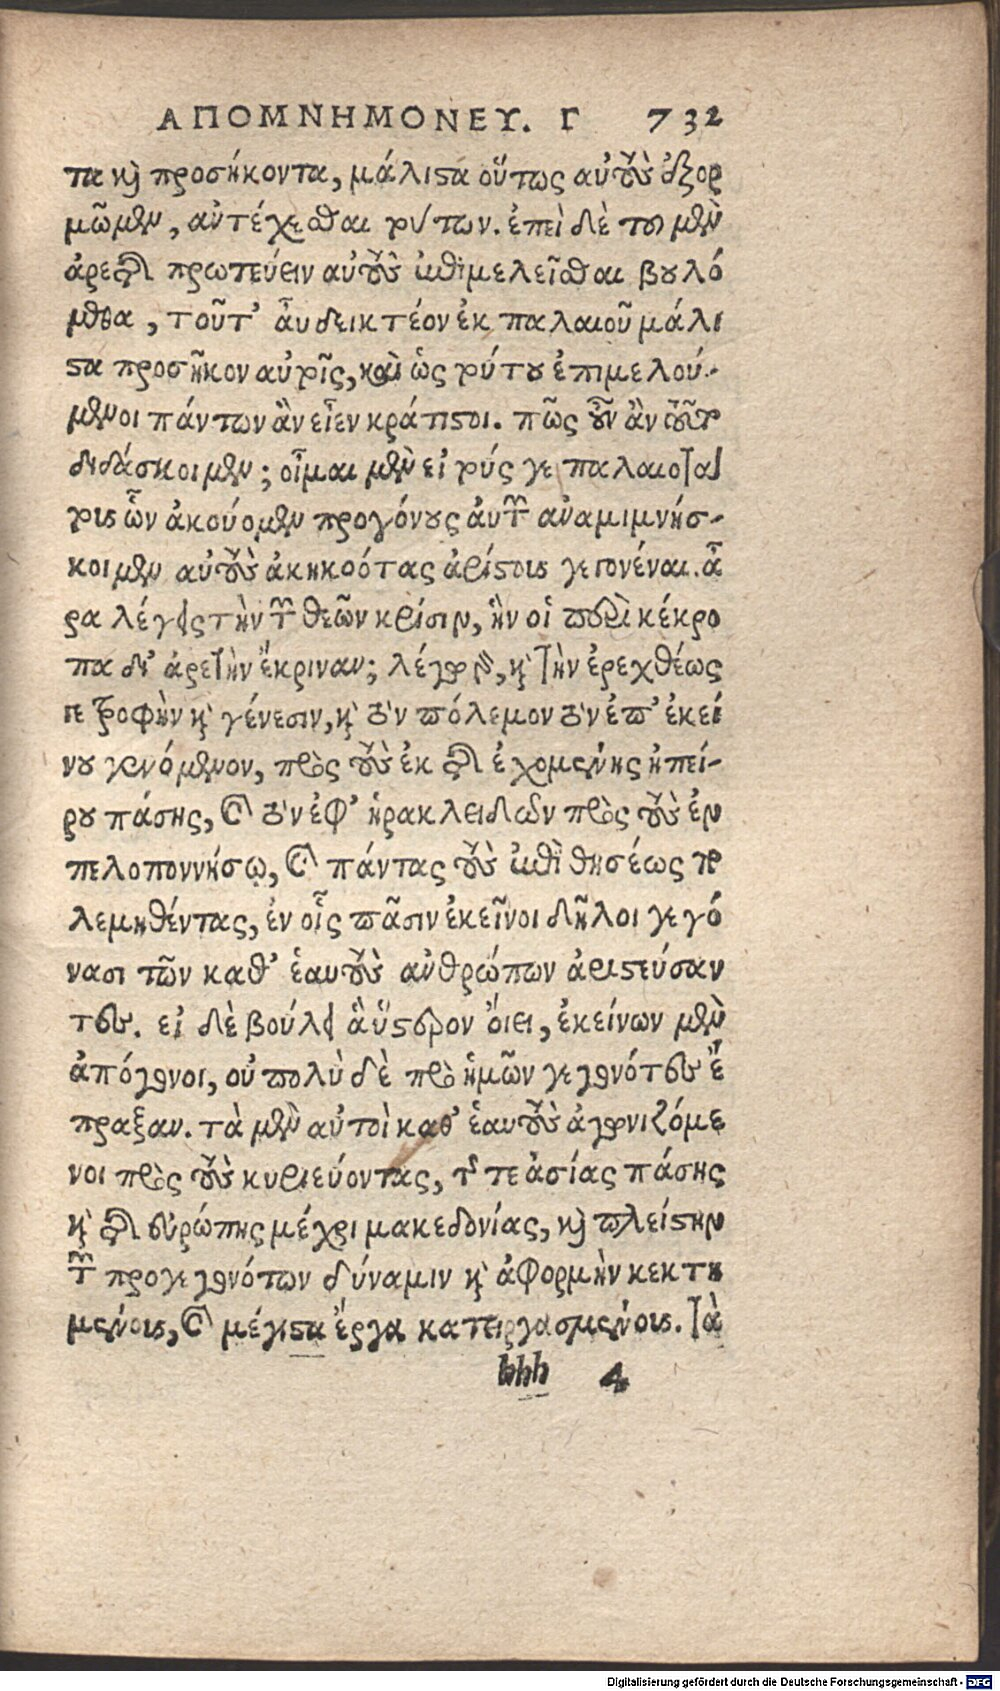 ΑΠΟΜΝΗΜΟΝΕΥ. Γ 732
τα καὶ προσήκοντα, μάλιστα οὕτως αὐτοὺς ἐξορ
μῶμεν, ἀντέχεσθαι τούτων. ἐπεὶ δὲ τοῦ μὲν
ἀρετῆς πρωτεύειν αὐτοὺς ἐπιμελεῖσθαι βουλό
μεθα, τοῦτ' αὖ δεικτέον ἐκ παλαιοῦ μάλι
στα προσῆκον αὐτοῖς, καὶ ὡς τούτου ἐπιμελού-
μενοι πάντων ἂν εἶεν κράτιστοι. πῶς οὖν ἂν τοῦτο
διδάσκοιμεν; οἶμαι μὲν εἰ τούς γε παλαιοτά
τους ὧν ἀκούομεν προγόνους αὐτῶν ἀναμιμνήσ-
κοιμεν αὐτοὺς ἀκηκοότας ἀρίστους γεγονέναι. ἆ
ρα λέγεις τὴν τῶν θεῶν κρίσιν, ἣν οἱ περὶ κέκρο
πα δι' ἀρετὴν ἔκριναν; λέγω γὰρ, καὶ τὴν ἐρεχθέως
γε τροφὴν καὶ γένεσιν, καὶ τὸν πόλεμον τὸν ἐπ' ἐκεί
νου γενόμενον, πρὸς τοὺς ἐκ τῆς ἐχομένης ἠπεί-
ρου πάσης, καὶ τὸν ἐφ' ἡρακλειδῶν πρὸς τοὺς ἐν
πελοποννήσῳ, καὶ πάντας τοὺς ἐπὶ θησέως πο
λεμηθέντας, ἐν οἷς πᾶσιν ἐκεῖνοι δῆλοι γεγό
νασι τῶν καθ' ἑαυτοὺς ἀνθρώπων ἀριστεύσαν
τες. εἰ δὲ βούλει ἃ ὕστερον οἵει, ἐκείνων μὲν
ἀπόγονοι, οὐ πολὺ δὲ πρὸ ἡμῶν γεγονότες ἔ
πραξαν. τὰ μὲν αὐτοὶ καθ' ἑαυτοὺς ἀγωνιζόμε
νοι πρὸς τοὺς κυριεύοντας, τῆς τε ἀσίας πάσης
καὶ τῆς εὐρώπης μέχρι μακεδονίας, καὶ πλείστην
τῶν προγεγονότων δύναμιν καὶ ἀφορμὴν κεκτη
μένους, καὶ μέγιστα ἔργα κατειργασμένους. τὰ
hhh 4
Digitalisierung gefördert durch die Deutsche Forschungsgemeinschaft - DFG